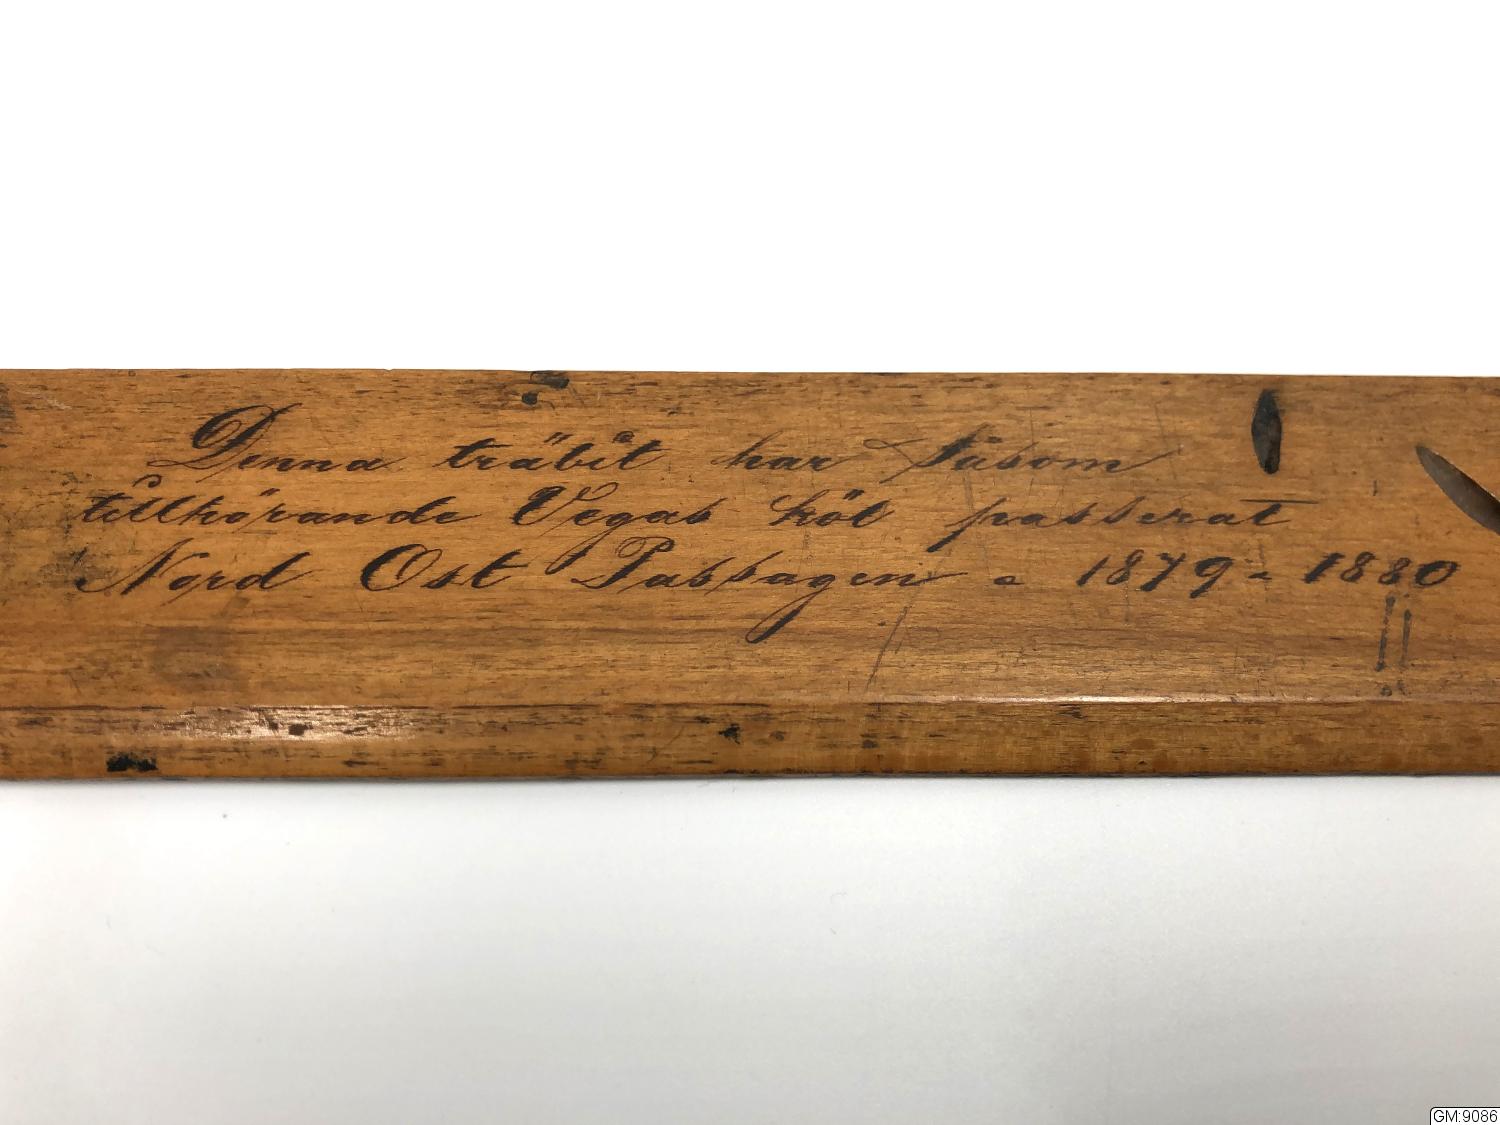 Denna träbit har såsom
tillhörande Vegas köl passerat
Nord Ost Passagen - 1879 - 1880
!!
GM:9086